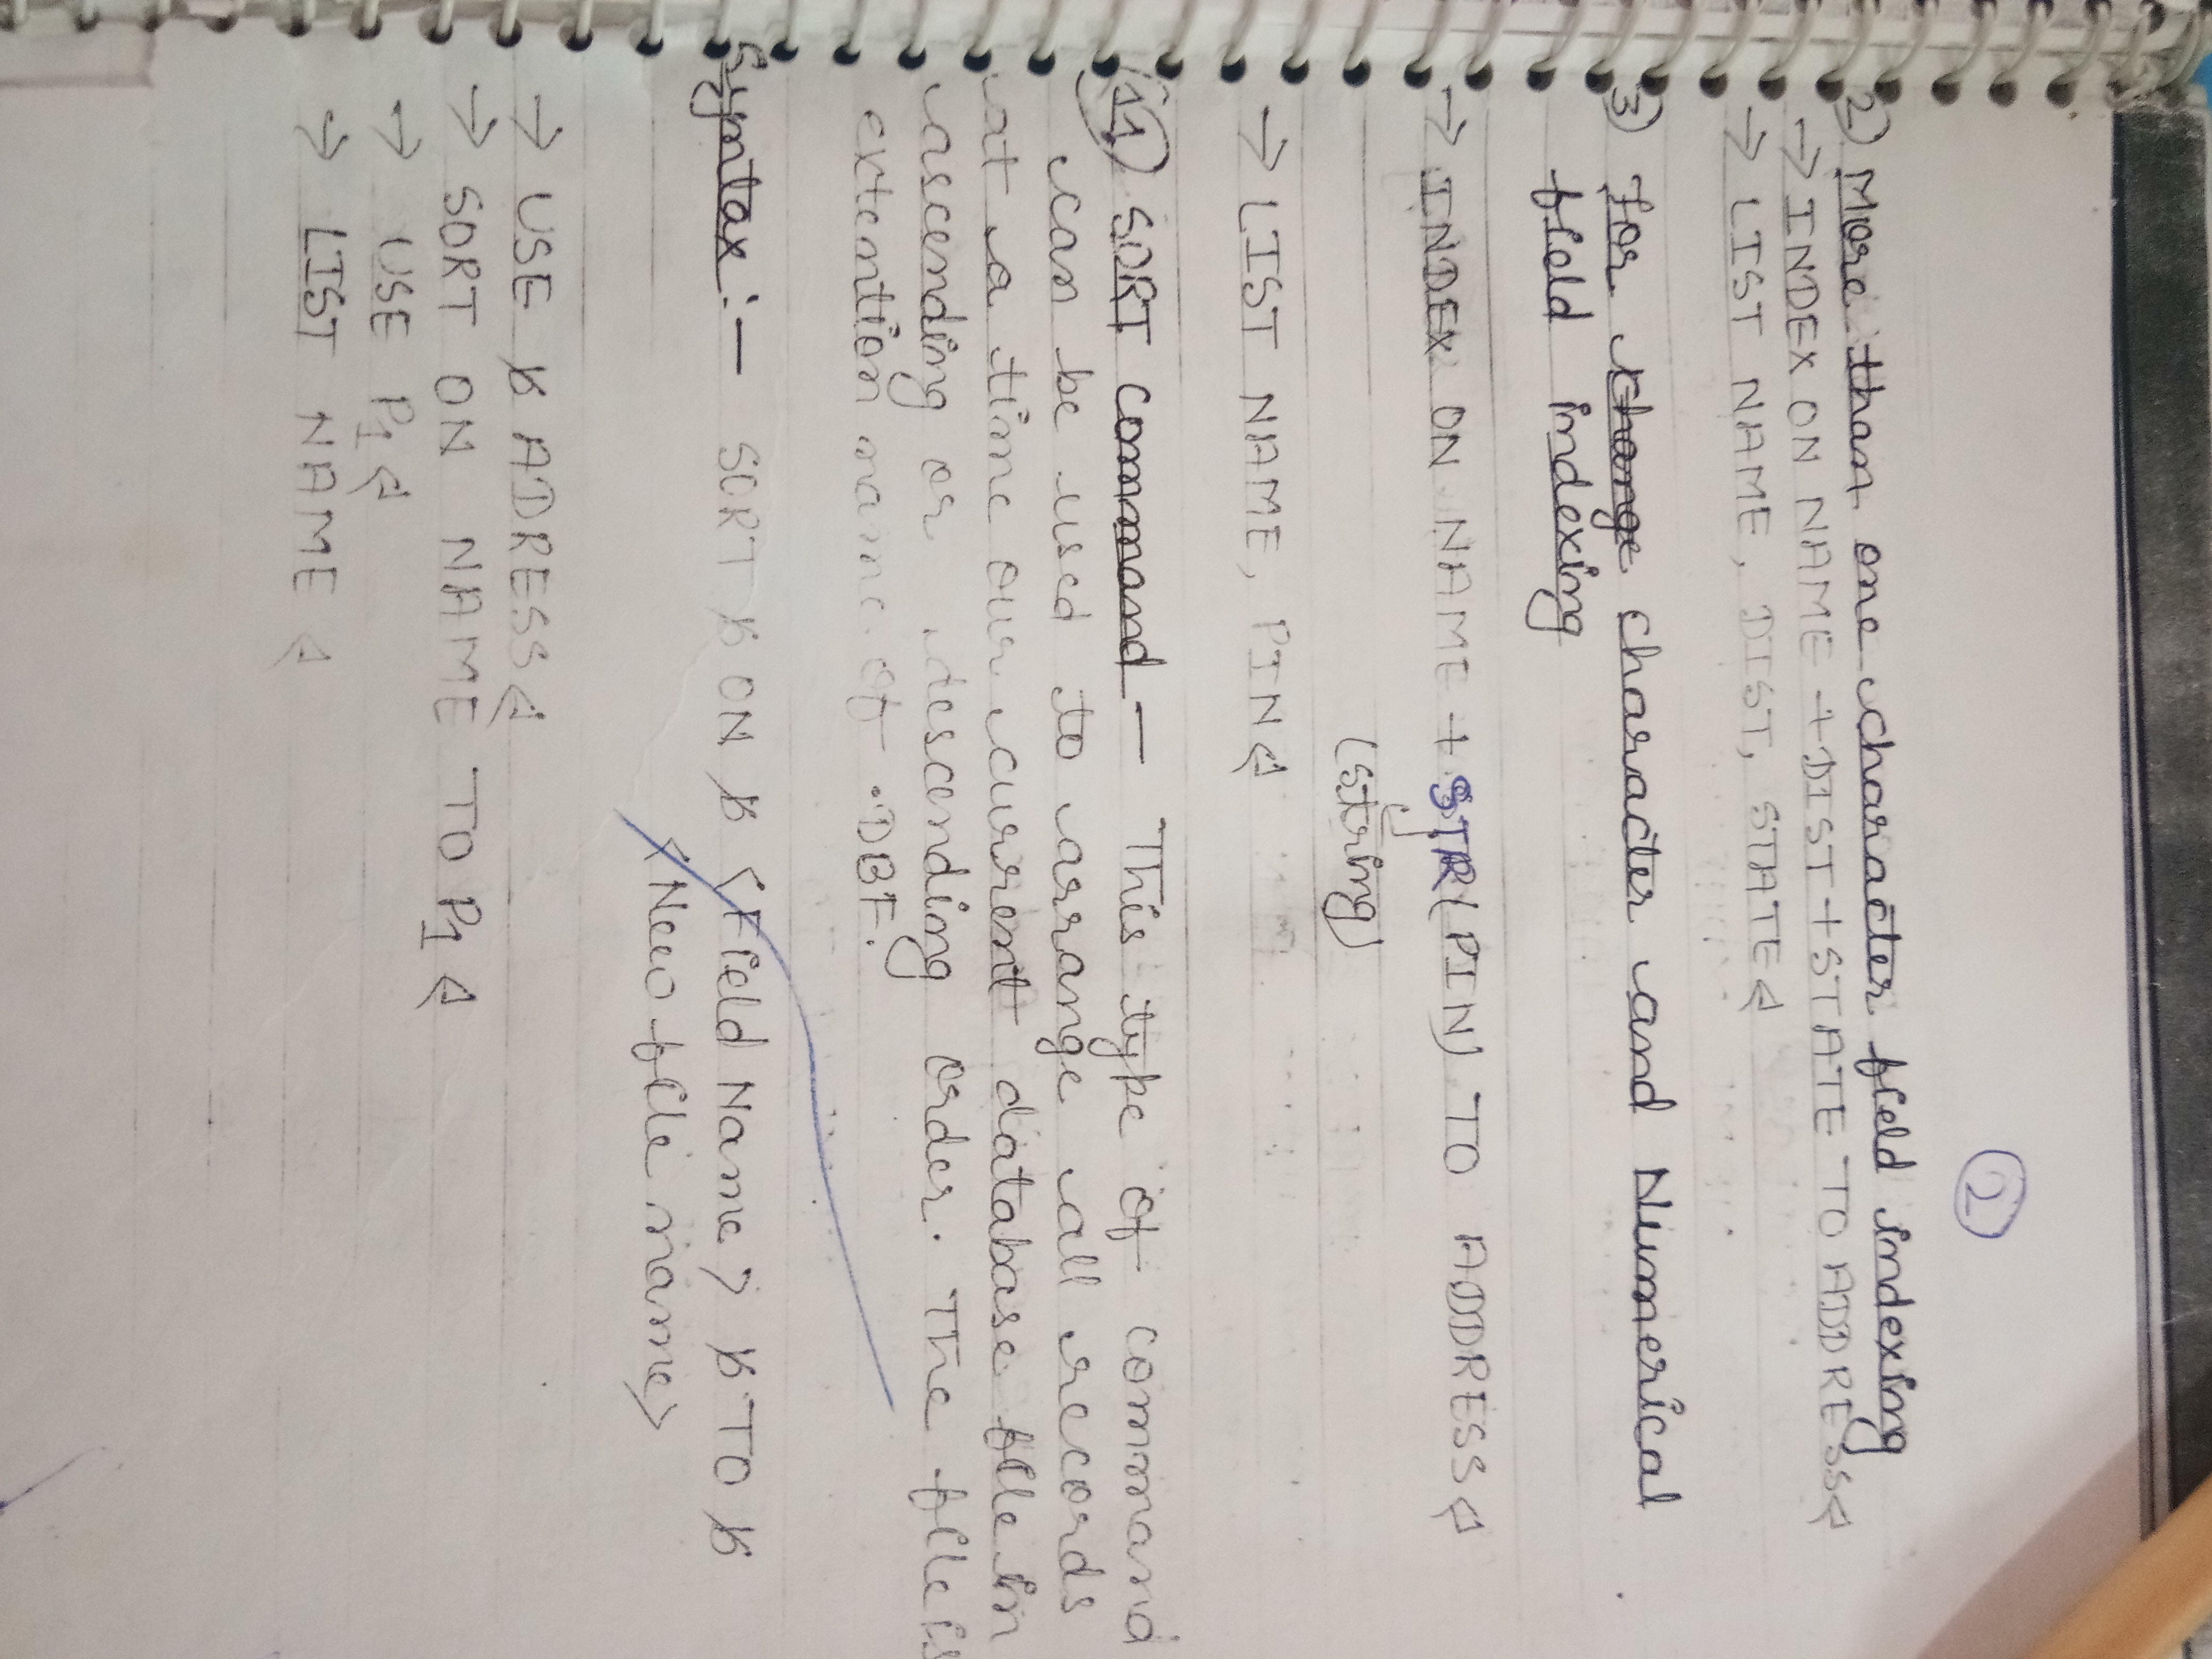 ②
2) More than one character field indexing
→ INDEX ON NAME + DIST + STATE TO ADDRESS ◁
→ LIST NAME, DIST, STATE ◁
3) For change character and Numerical
field indexing
→ INDEX ON NAME + STR(PIN) TO ADDRESS ◁
(string)
→ LIST NAME, PIN ◁
SORT command — This type of command
can be used to arrange all records
at a time our current database file in
ascending or descending order. The file is
extention name of .DBF.
Syntax :— SORT ƀ ON ƀ <Field Name> ƀ TO ƀ
<New file name>
→ USE ƀ ADRESS ◁
→ SORT ON NAME TO P1 ◁
→ USE P1 ◁
→ LIST NAME ◁